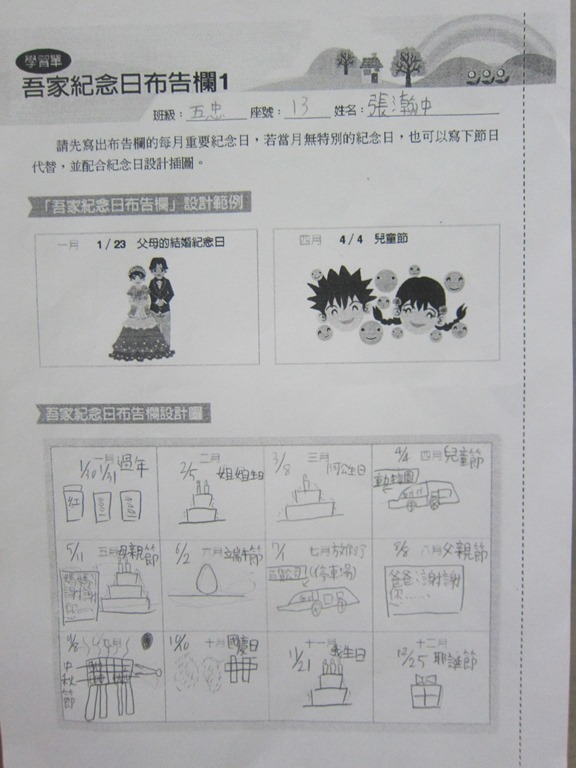 學習單
吾家紀念日布告欄1
班級：五忠 座號：13 姓名：張瀚中
請先寫出布告欄的每月重要紀念日，若當月無特別的紀念日，也可以寫下節日
代替，並配合紀念日設計插圖。
「吾家紀念日布告欄」設計範例
一月 1/23 父母的結婚紀念日
四月 4/4 兒童節
吾家紀念日布告欄設計圖
一月 過年
1/30 1/31
紅
1000
1000
二月
2/5 姐姐生日
三月
3/8 阿公生日
4/4 四月 兒童節
動物園
5/11 五月 母親節
媽媽
謝謝
6/2 六月 端午節
7/1 七月
(停車場)
8/8 八月 父親節
爸爸,謝謝
你……
九月
中秋節
10/10 十月 國慶日
十一月 生日
11/21
十二月
12/25 耶誕節